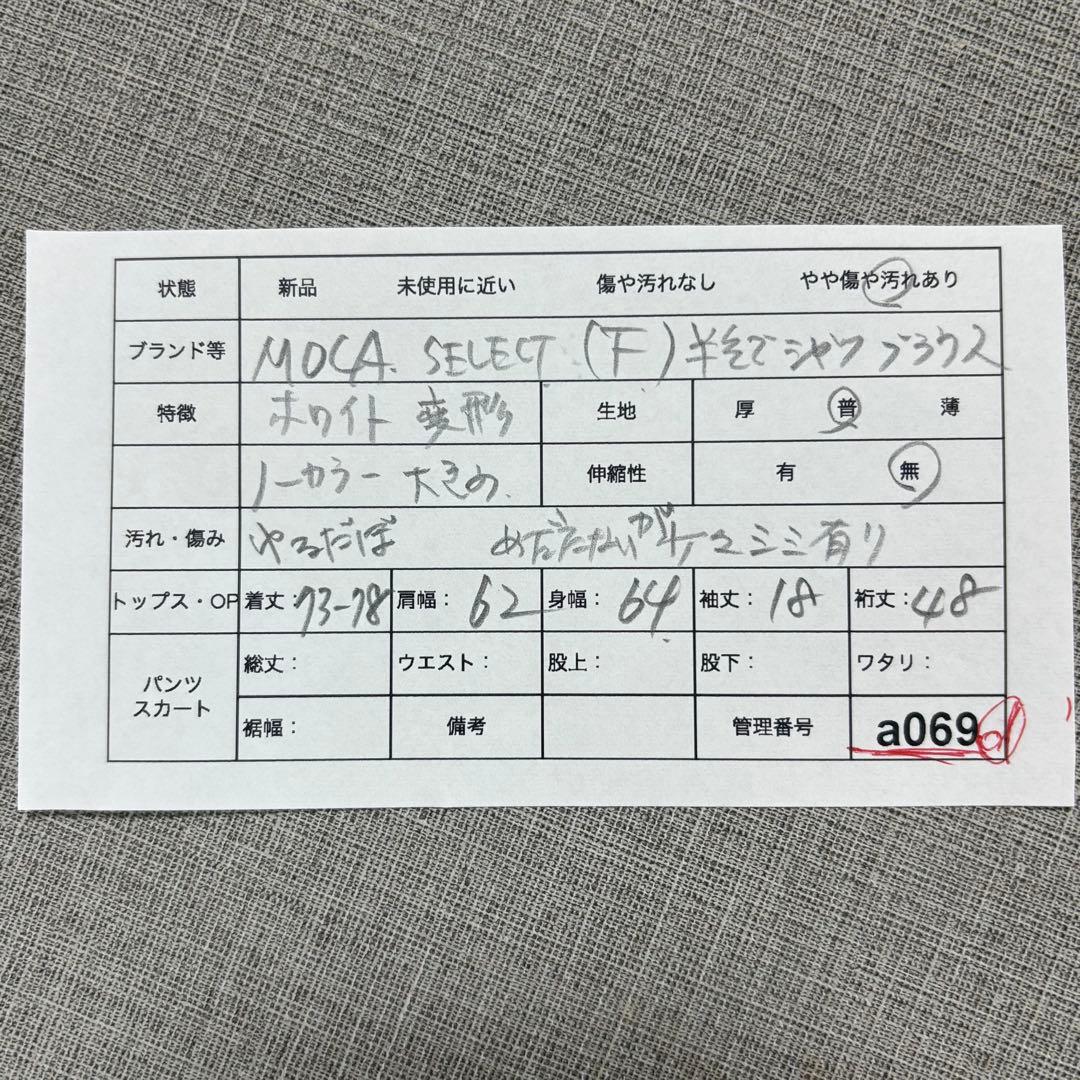 状態 新品 未使用に近い 傷や汚れなし やや傷や汚れあり
ブランド等 MOCA. SELECT (F) 半そでシャツ ブラウス
特徴 ホワイト 変形 生地 厚 普 薄
ノーカラー 大きめ 伸縮性 有 無
汚れ・傷み ゆるだぼ めだたないが シミ有り
トップス・OP 着丈:73-78 肩幅: 62 身幅: 64 袖丈: 18 裄丈:48
パンツ スカート 総丈: ウエスト: 股上: 股下: ワタリ:
裾幅: 備考 管理番号 a069